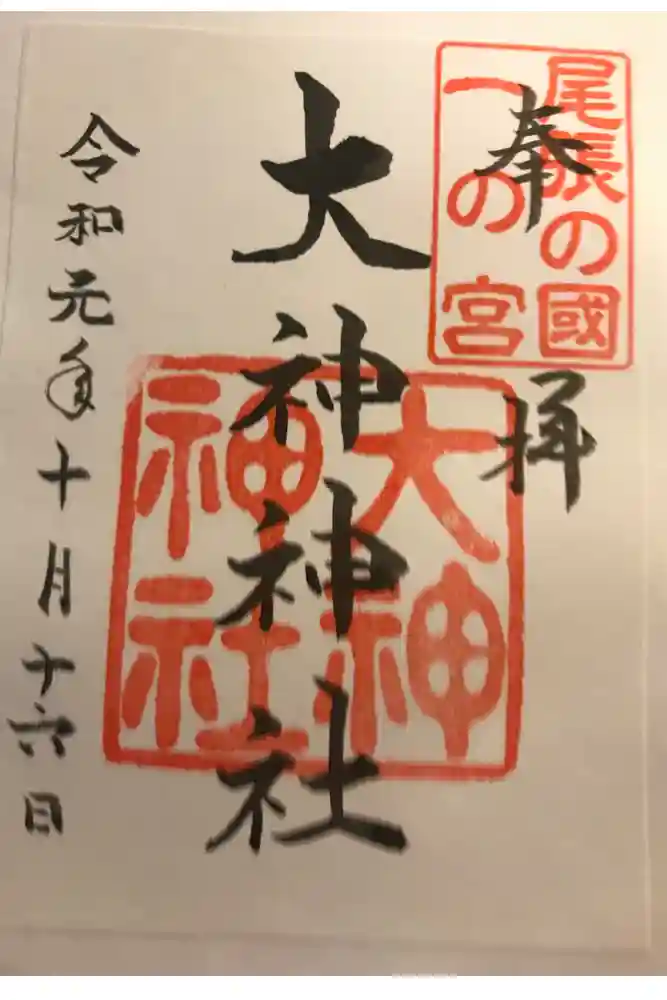 尾張の國
一の宮
奉拝
大神神社
大神
神社
令和元年十月十六日